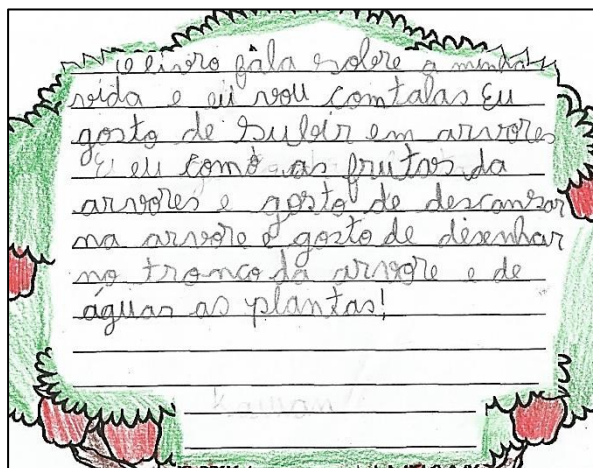 O livro fala sobre a minha
vida e eu vou comtalas Eu
gosto de subir em arvores
E eu como as frutas da
arvores e gosto de descansar
na arvore e gosto de desenhar
no tronco da arvore e de
águar as plantas!